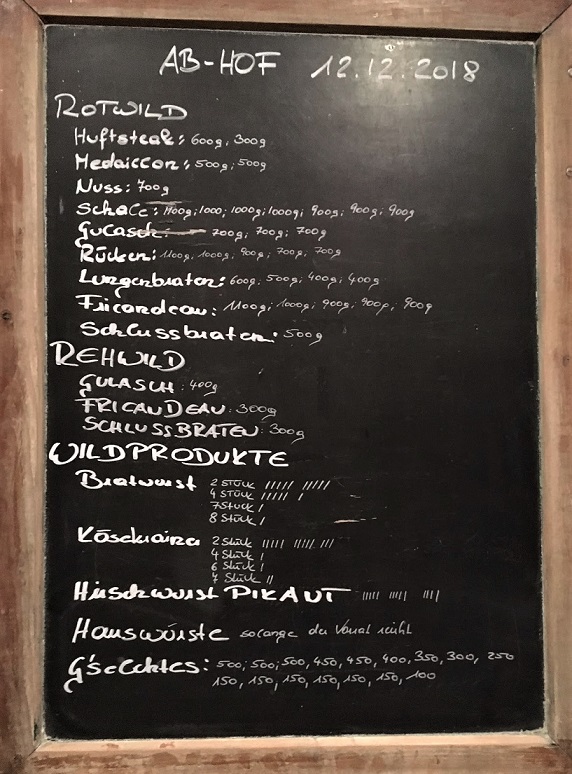 AB-HOF 12.12.2018
ROTWILD
Huftsteak: 600g, 300g
Medaillon: 500g; 500g
Nuss: 700g
Schale: 1100g; 1000; 1000g; 1000g; 900g; 900g; 900g
Gulasch: 700g; 700g; 700g
Rücken: 1100g, 1000g, 900g, 700g, 700g
Lungenbraten: 600g, 500g, 400g, 400g
Fricandeau: 1100g; 1000g; 900g, 900g, 900g
Schlussbraten: 500g
REHWILD
GULASCH: 400g
FRICANDEAU: 300g
SCHLUSSBRATEN: 300g
WILDPRODUKTE
Bratwurst 2 STÜCK ///// /////
4 STÜCK ///// /
7 Stück /
8 Stück /
Käsekrainer 2 Stück ///// ///// ///
4 Stück /
6 Stück /
7 Stück //
Hirschwurst PIKANT
Hauswürste solange der Vorrat reicht
G'selchtes: 500; 500; 500, 450, 450, 400, 350, 300, 250
150, 150, 150, 150, 150, 150, 100